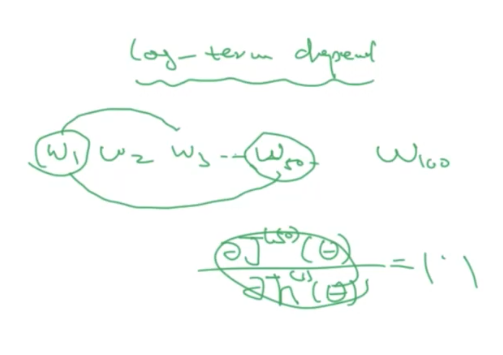 log-term depend
w₁ w₂ w₃ -- w₅₀ - w₁₀₀
∂J⁽⁵⁰⁾(θ)
∂h⁽¹⁾(θ) = | · |